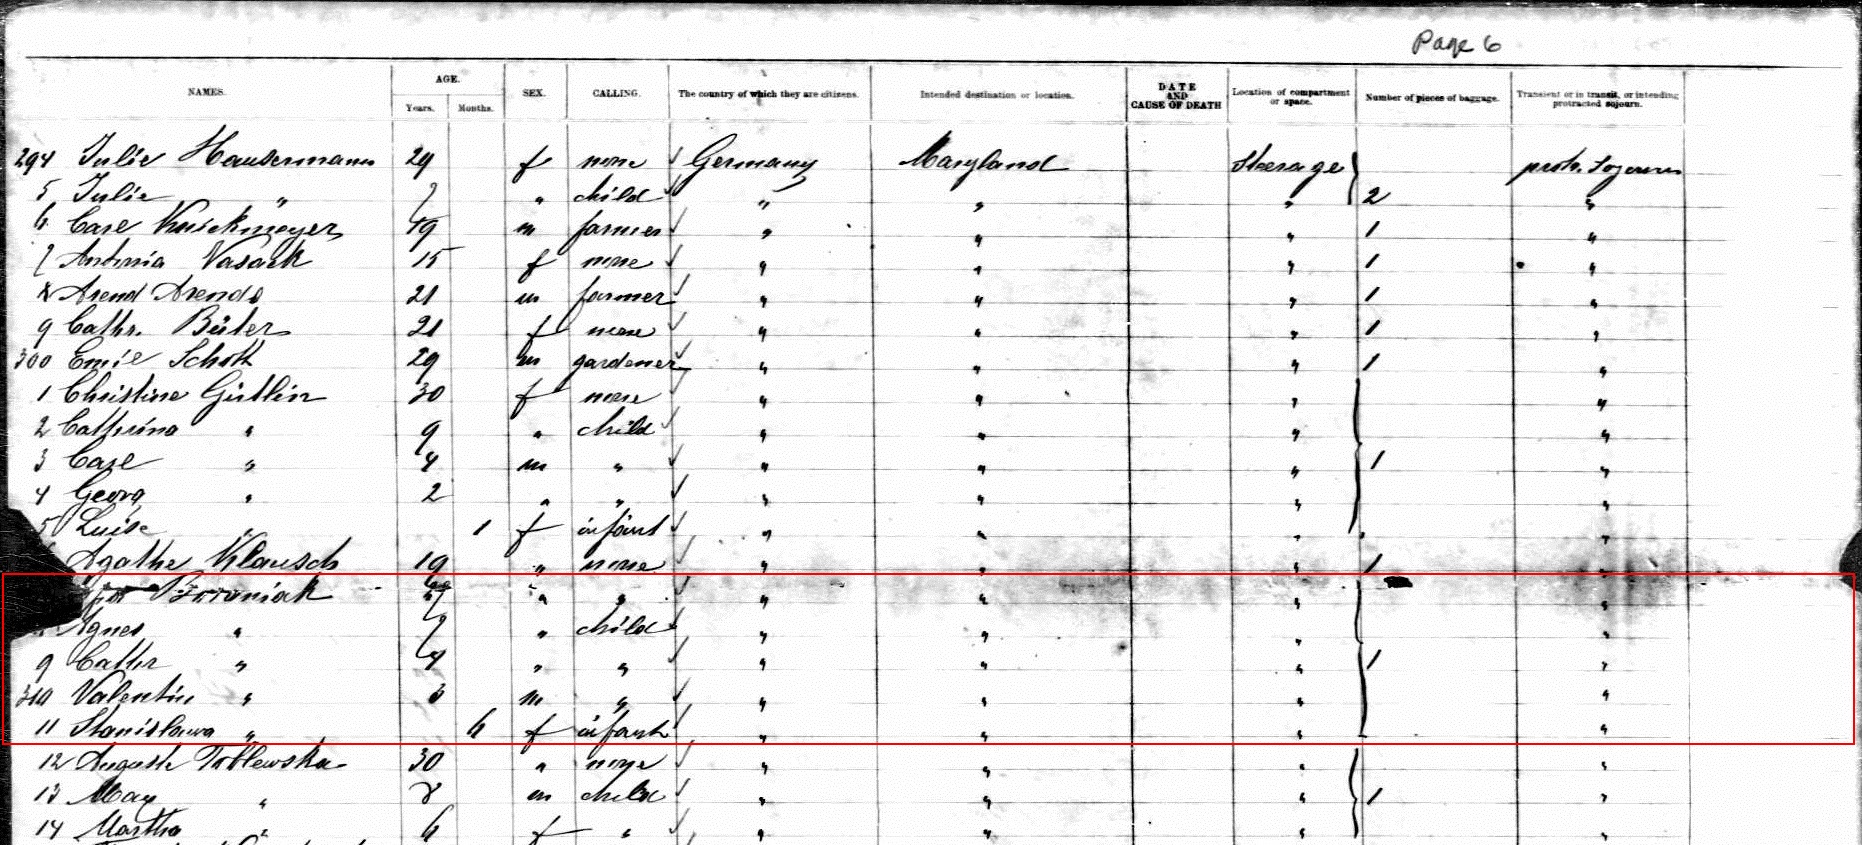 Page 6
NAMES. AGE. Years. Months. SEX. CALLING. The country of which they are citizens. Intended destination or location. DATE AND CAUSE OF DEATH Location of compartment or space. Number of pieces of baggage. Transient or in transit, or intending protracted sojourn.
294 Julie Hausermann 29 f none ✓ Germany Maryland Steerage protr. Sojourn
5 Julie " 7 " child ✓ " " " 2 "
6 Carl Knickmeyer 19 m farmer ✓ " " " 1 "
7 Antonia Vasack 15 f none ✓ " " " 1 "
8 Arend Arends 21 m farmer ✓ " " " 1 "
9 Cathr. Büter 21 f none ✓ " " " 1 "
300 Emil Schott 29 m gardener ✓ " " " 1 "
1 Christine Gütlin 30 f none ✓ " " " "
2 Catherina " 9 " child ✓ " " " "
3 Carl " 4 m " ✓ " " " 1 "
4 Georg " 2 " " ✓ " " " "
5 Luise " 1 f infant ✓ " " " "
Agathe Klausch 19 " none ✓ " " " 1 "
" " ✓ " " " "
Agnes " 7 " child ✓ " " " "
9 Cathr " 4 " " ✓ " " " 1 "
310 Valentin " 3 m " ✓ " " " "
11 Stanislawa " 6 f infant ✓ " " " "
12 Auguste 30 " none ✓ " " " "
13 Max " 8 m child ✓ " " " 1 "
14 Martha " 6 f " ✓ " " " "